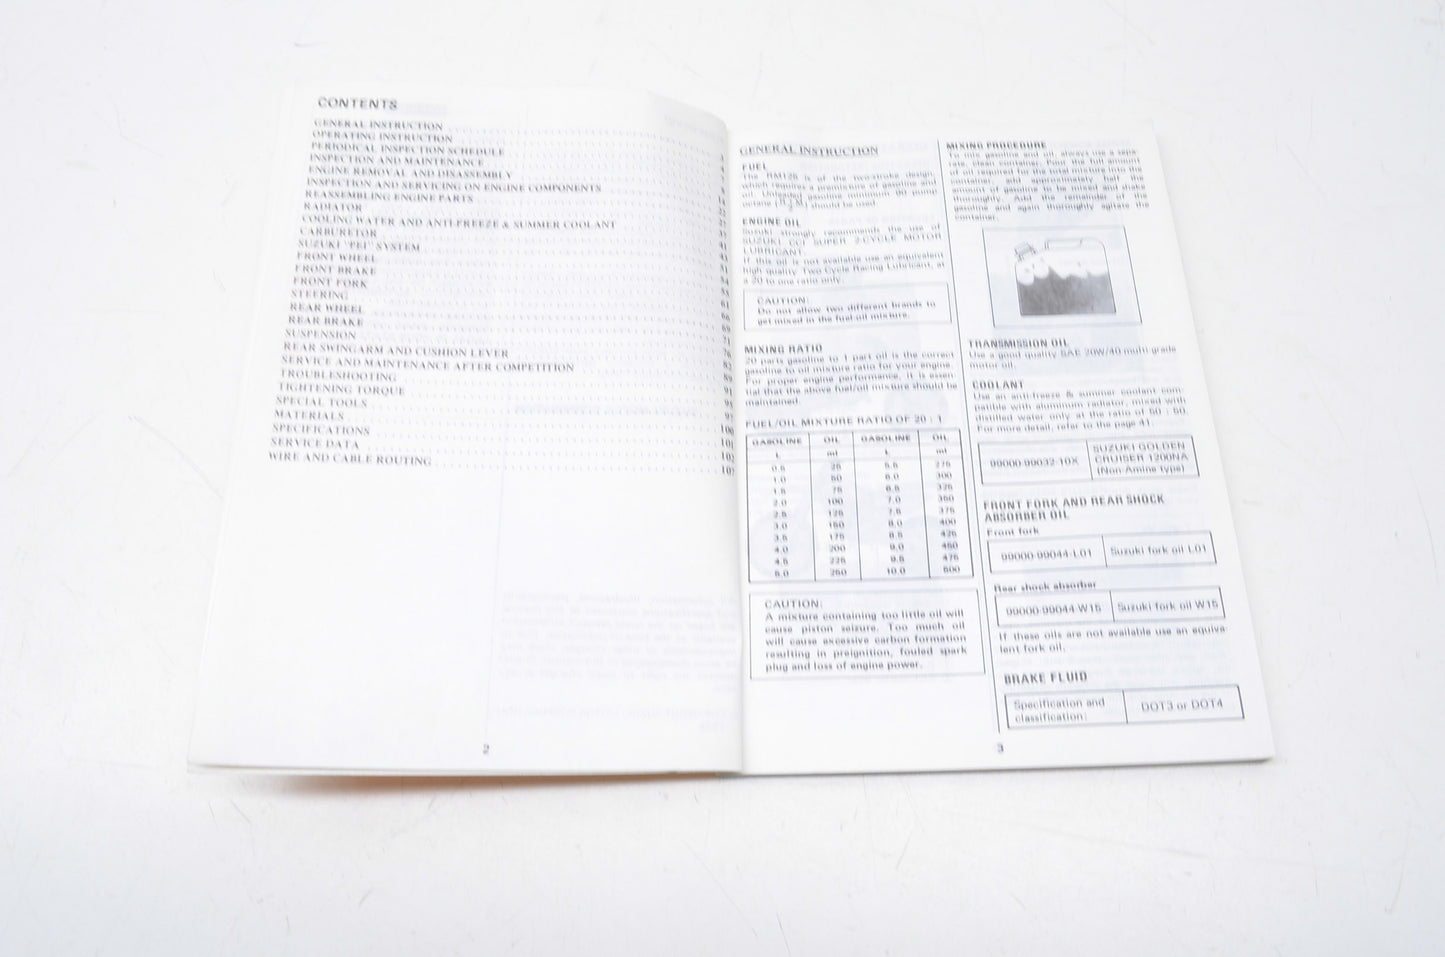 CONTENTS
GENERAL INSTRUCTION
OPERATING INSTRUCTION
PERIODICAL INSPECTION SCHEDULE
INSPECTION AND MAINTENANCE
ENGINE REMOVAL AND DISASSEMBLY
INSPECTION AND SERVICING ON ENGINE COMPONENTS
REASSEMBLING ENGINE PARTS
RADIATOR
COOLING WATER AND ANTI-FREEZE & SUMMER COOLANT
CARBURETOR
SUZUKI "PEI" SYSTEM
FRONT WHEEL
FRONT BRAKE
FRONT FORK
STEERING
REAR WHEEL
REAR BRAKE
SUSPENSION
REAR SWINGARM AND CUSHION LEVER
SERVICE AND MAINTENANCE AFTER COMPETITION
TROUBLESHOOTING
TIGHTENING TORQUE
SPECIAL TOOLS
MATERIALS
SPECIFICATIONS
SERVICE DATA
WIRE AND CABLE ROUTING
2
GENERAL INSTRUCTION
FUEL
The RM125 is of the two-stroke design,
which requires a premixture of gasoline and
oil. Unleaded gasoline minimum 90 pump
octane should be used.
ENGINE OIL
Suzuki strongly recommends the use of
SUZUKI CCI SUPER 2-CYCLE MOTOR
LUBRICANT.
If this oil is not available use an equivalent
high quality Two Cycle Racing Lubricant, at
a 20 to one ratio only.
CAUTION:
Do not allow two different brands to
get mixed in the fuel oil mixture.
MIXING RATIO
20 parts gasoline to 1 part oil is the correct
gasoline to oil mixture ratio for your engine.
For proper engine performance, it is essen-
tial that the above fuel/oil mixture should be
maintained.
FUEL/OIL MIXTURE RATIO OF 20 : 1
GASOLINE OIL GASOLINE OIL
L ml L ml
0.5 25 5.5 275
1.0 50 6.0 300
1.5 75 6.5 325
2.0 100 7.0 350
2.5 125 7.5 375
3.0 150 8.0 400
3.5 175 8.5 425
4.0 200 9.0 450
4.5 225 9.5 475
5.0 250 10.0 500
CAUTION:
A mixture containing too little oil will
cause piston seizure. Too much oil
will cause excessive carbon formation
resulting in preignition, fouled spark
plug and loss of engine power.
MIXING PROCEDURE
To mix gasoline and oil, always use a sepa-
rate, clean container. Pour the full amount
of oil required for the total mixture into the
container, add approximately half the
amount of gasoline to be mixed and shake
thoroughly. Add the remainder of the
gasoline and again thoroughly agitate the
container.
TRANSMISSION OIL
Use a good quality SAE 20W/40 multi-grade
motor oil.
COOLANT
Use an anti-freeze & summer coolant com-
patible with aluminum radiator, mixed with
distilled water only at the ratio of 50 : 50.
For more detail, refer to the page 41.
99000-99032-10X SUZUKI GOLDEN
CRUISER 1200NA
(Non-Amine type)
FRONT FORK AND REAR SHOCK
ABSORBER OIL
Front fork
99000-99044-L01 Suzuki fork oil L01
Rear shock absorber
99000-99044-W15 Suzuki fork oil W15
If these oils are not available use an equiva
lent fork oil.
BRAKE FLUID
Specification and DOT3 or DOT4
classification:
3